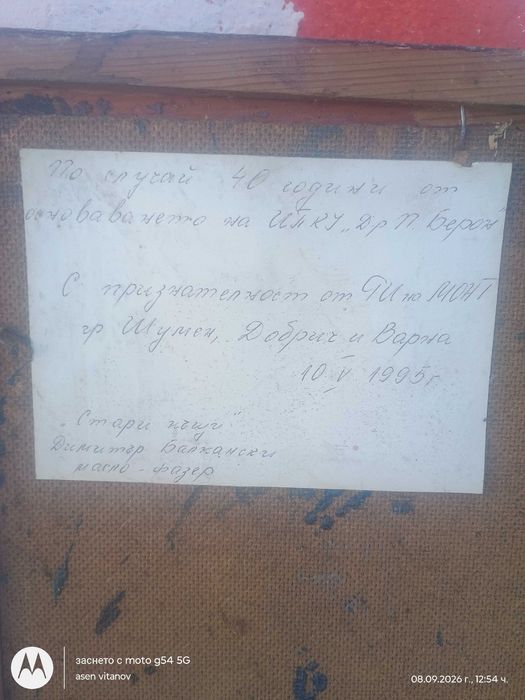 По случай 40 години от
основаването на ИПКУ „Д-р П. Берон"
С признателност от РИ на МОНТ
гр Шумен, Добрич и Варна
10 V 1995 г
„Стари къщи"
Димитър Балкански
масло-фазер
заснето с moto g54 5G
asen vitanov
08.09.2026 г., 12:54 ч.